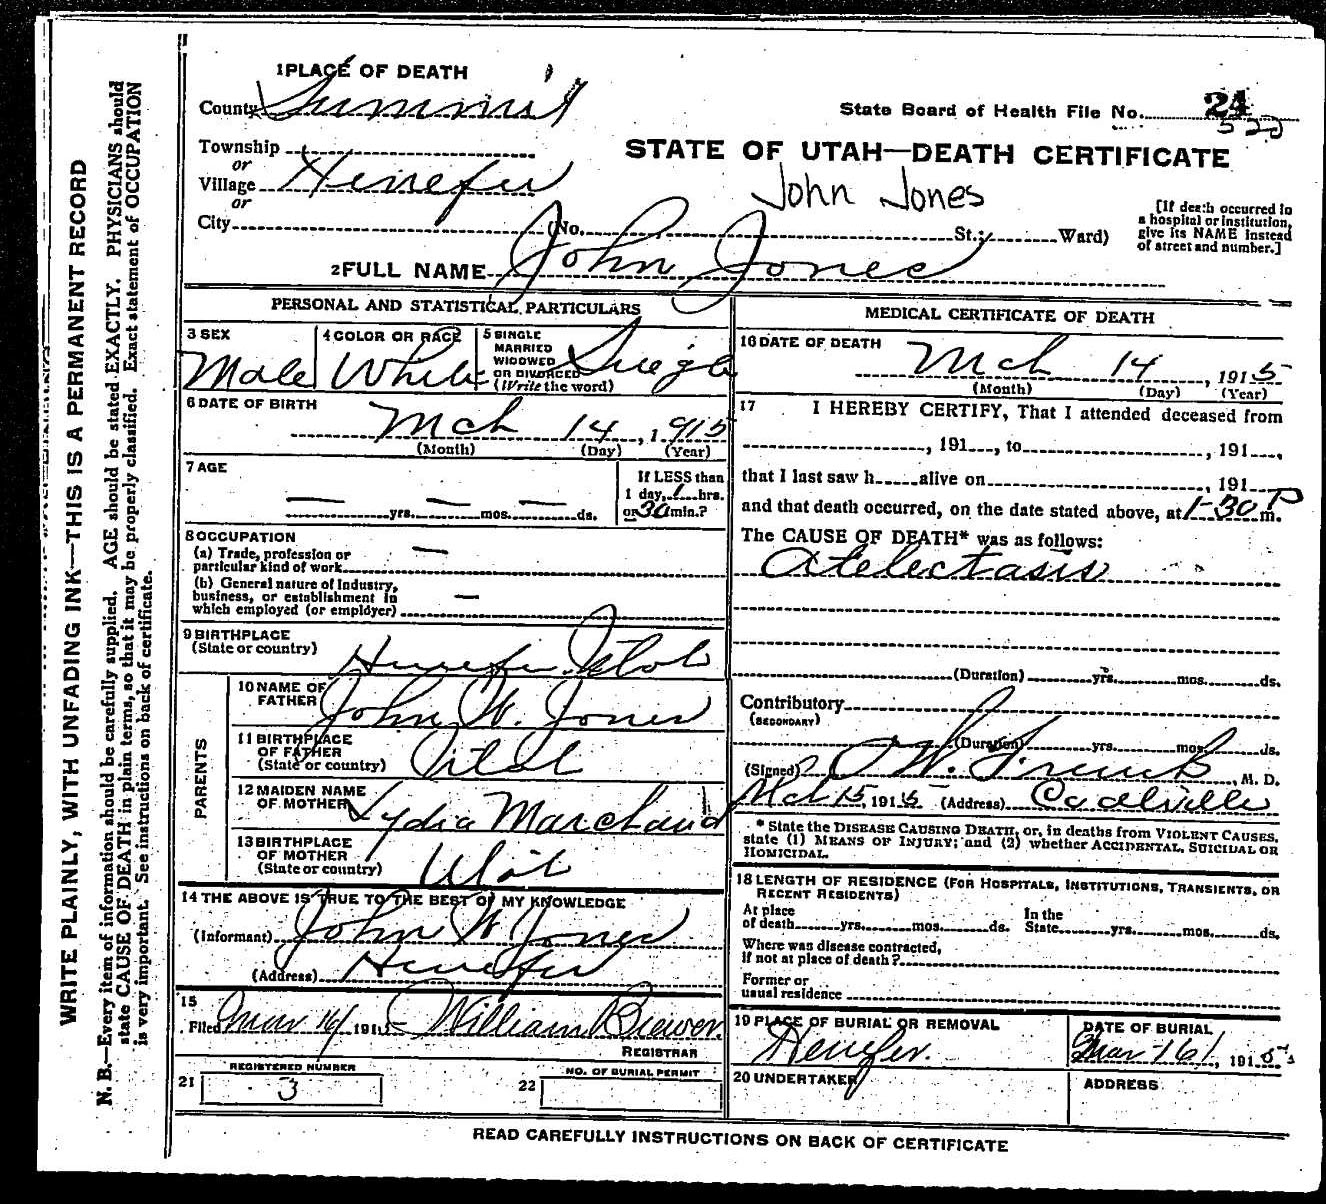 1 PLACE OF DEATH
County Summit
State Board of Health File No. 24
522
Township
or
Village Henefer
or
City (No. St.; Ward)
STATE OF UTAH—DEATH CERTIFICATE
John Jones
[If death occurred in a hospital or institution, give its NAME instead of street and number.]
2 FULL NAME John Jones
PERSONAL AND STATISTICAL PARTICULARS
3 SEX Male
4 COLOR OR RACE White
5 SINGLE MARRIED WIDOWED OR DIVORCED (Write the word) Single
6 DATE OF BIRTH
Mch 14, 1915
(Month) (Day) (Year)
7 AGE
— yrs. — mos. — ds.
If LESS than
1 day, 1 hrs.
or 30 min.?
8 OCCUPATION
(a) Trade, profession or
particular kind of work —
(b) General nature of Industry,
business, or establishment in
which employed (or employer) —
9 BIRTHPLACE
(State or country) Henefer Utah
PARENTS
10 NAME OF FATHER John W. Jones
11 BIRTHPLACE OF FATHER
(State or country) Utah
12 MAIDEN NAME OF MOTHER Lydia Marchand
13 BIRTHPLACE OF MOTHER
(State or country) Utah
14 THE ABOVE IS TRUE TO THE BEST OF MY KNOWLEDGE
(Informant) John W Jones
(Address) Henefer
15
Filed Mar 16, 191 William Brewer
REGISTRAR
REGISTERED NUMBER
21 3
NO. OF BURIAL PERMIT
22
MEDICAL CERTIFICATE OF DEATH
16 DATE OF DEATH
Mch 14, 1915
(Month) (Day) (Year)
17 I HEREBY CERTIFY, That I attended deceased from
, 191 , to , 191 ,
that I last saw h alive on , 191
and that death occurred, on the date stated above, at 1-30 P m.
The CAUSE OF DEATH* was as follows:
Atelectasis
(Duration) yrs. mos. ds.
Contributory
(SECONDARY)
(Duration) yrs. mos. ds.
(Signed) , M. D.
Mch 15, 1915 (Address) Coalville
* State the DISEASE CAUSING DEATH, or, in deaths from VIOLENT CAUSES,
state (1) MEANS OF INJURY; and (2) whether ACCIDENTAL, SUICIDAL OR
HOMICIDAL.
18 LENGTH OF RESIDENCE (FOR HOSPITALS, INSTITUTIONS, TRANSIENTS, OR
RECENT RESIDENTS)
At place of death yrs. mos. ds. In the State yrs. mos. ds.
Where was disease contracted,
if not at place of death?
Former or
usual residence
19 PLACE OF BURIAL OR REMOVAL
Henefer.
DATE OF BURIAL
Mar 16, 1915
20 UNDERTAKER
ADDRESS
READ CAREFULLY INSTRUCTIONS ON BACK OF CERTIFICATE
WRITE PLAINLY, WITH UNFADING INK—THIS IS A PERMANENT RECORD
N. B.—Every item of information should be carefully supplied. AGE should be stated EXACTLY. PHYSICIANS should
state CAUSE OF DEATH in plain terms, so that it may be properly classified. Exact statement of OCCUPATION
is very important. See instructions on back of certificate.